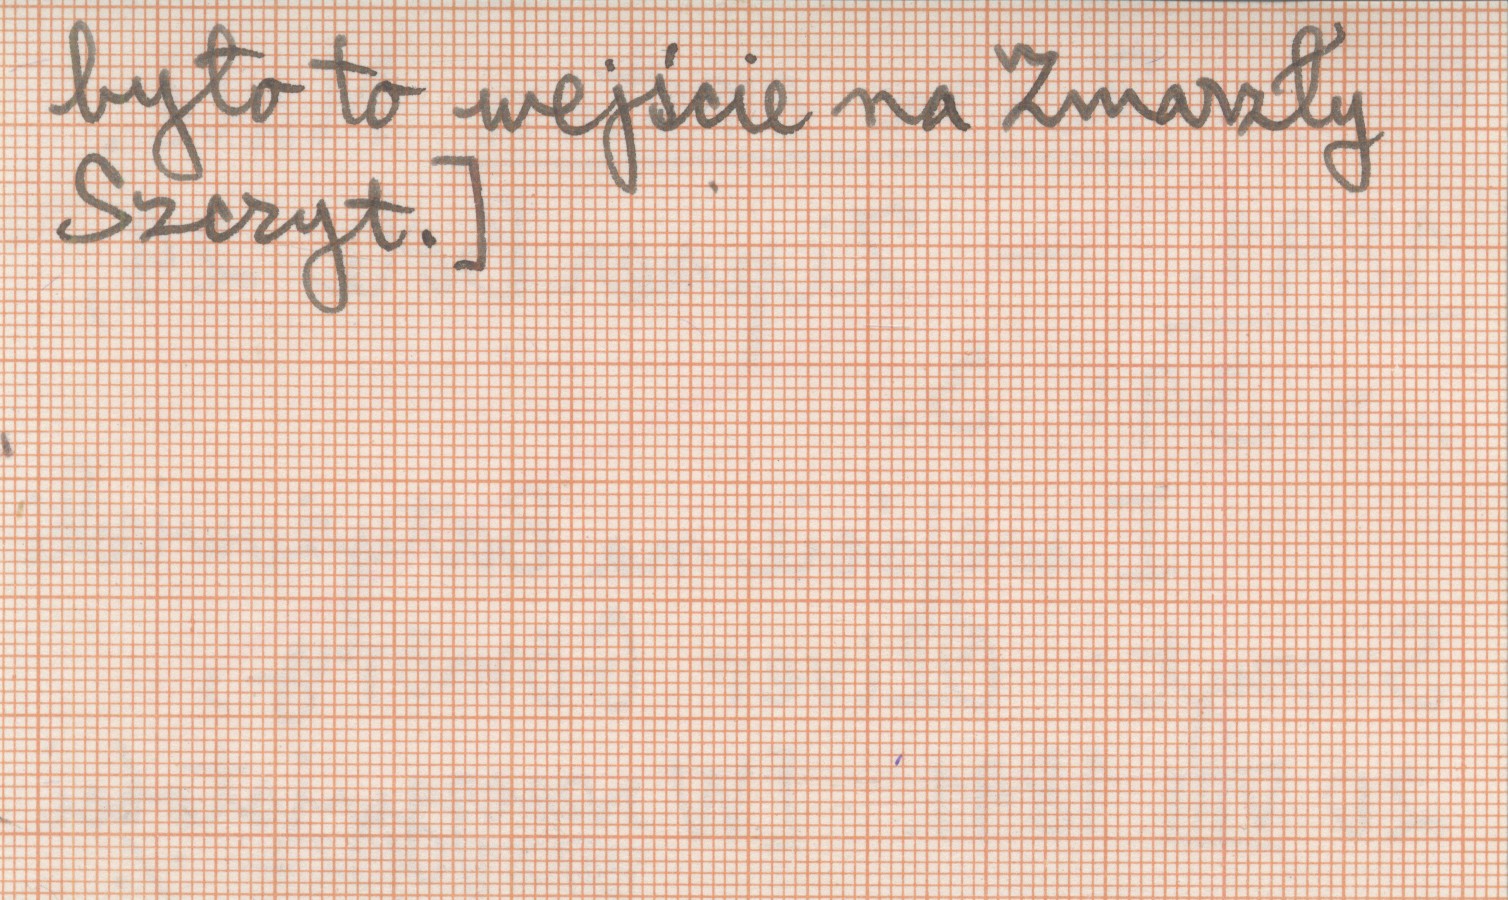 było to wejście na Zmarzły
Szczyt.]